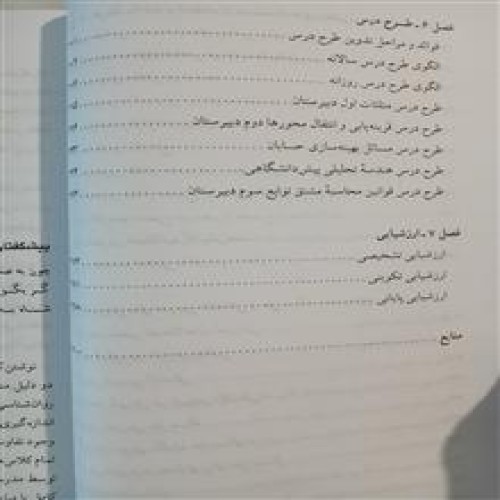 فصل ۶ ـ طرح درس
فوائد و مراحل تدوین طرح درس
الگوی طرح درس سالانه
الگوی طرح درس روزانه
طرح درس مثلثات اول دبیرستان
طرح درس قرینه‌یابی و انتقال محورها دوم دبیرستان
طرح درس مسائل بهینه‌سازی حسابان
طرح درس هندسهٔ تحلیلی پیش‌دانشگاهی
طرح درس قوانین محاسبهٔ مشتق توابع سوم دبیرستان
فصل ۷ ـ ارزشیابی
ارزشیابی تشخیصی
ارزشیابی تکوینی
ارزشیابی پایانی
منابع
پیشگفتار
چون به
گر بگو
نوشتن
دو دلیل
روان‌شناسی
اندازه‌گیری
وجود تفاوت
تمام کلاس‌ها
توسط مدرس
کامل یا